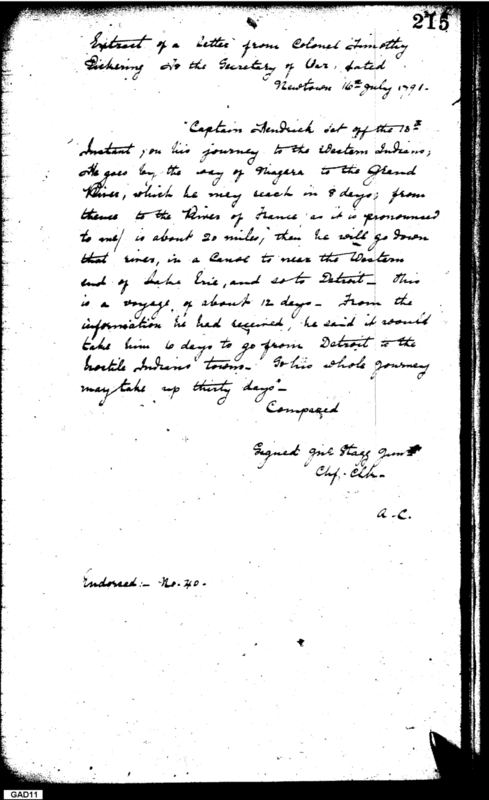 215
Extract of a letter from Colonel Timothy
Pickering to the Secretary of War, dated
Newtown 16th July 1791.
"Captain Hendrick set off the 15th
Instant, on his journey to the Western Indians;
He goes by the way of Niagara to the Grand
River, which he may reach in 8 days; from
thence to the River of France as it is pronounced
to me/ is about 20 miles; then he will go down
that river, in a Canoe to near the Western
end of Lake Erie, and so to Detroit - This
is a voyage, of about 12 days - From the
information he had received, he said it would
take him 6 days to go from Detroit to the
hostile Indians towns - So his whole journey
may take up thirty days" -
Compared
Signed Jno Stagg Junr
Chf. Clk -
A - C.
Endorsed: - No. 40 -
GAD11